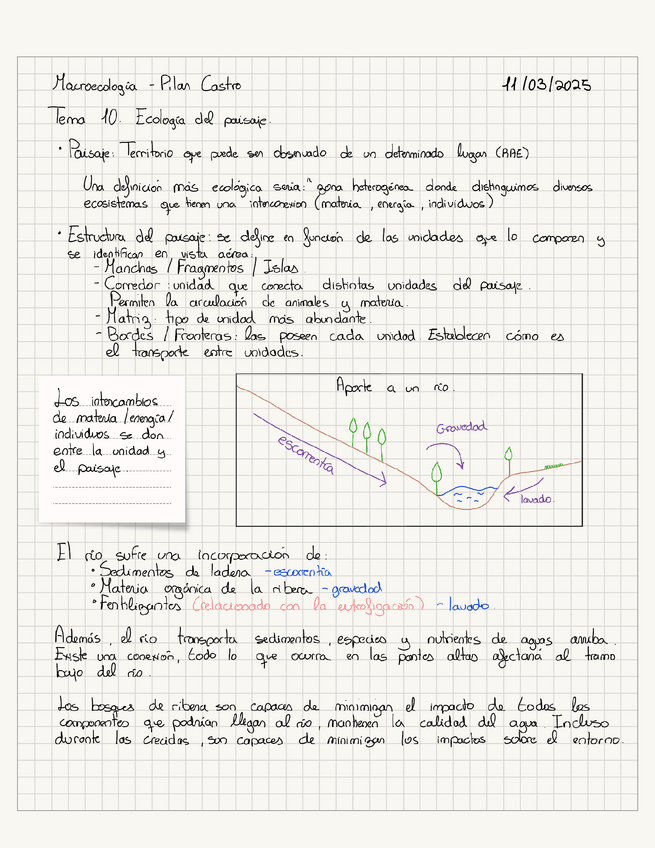 Macroecología - Pilar Castro
11/03/2025
Tema 10. Ecología del paisaje.
• Paisaje: Territorio que puede ser observado de un determinado lugar (RAE)
Una definición más ecológica sería: "zona heterogénea donde distinguimos diversos
ecosistemas que tienen una interconexion (materia, energía, individuos)
• Estructura del paisaje: se define en función de las unidades que lo componen y
se identifican en vista aérea:
- Manchas / Fragmentos / Islas.
- Corredor: unidad que conecta distintas unidades del paisaje.
Permiten la circulación de animales y materia.
- Matriz: tipo de unidad más abundante.
- Bordes / Fronteras: las poseen cada unidad. Establecen cómo es
el transporte entre unidades.
Los intercambios
de materia /energía/
individuos se dan
entre la unidad y
el paisaje.
Aporte a un río.
escorrentía
Gravedad
lavado.
El río sufre una incorporación de:
• Sedimentos de ladera - escorrentía
• Materia orgánica de la ribera - gravedad
• Fertilizantes (relacionado con la eutrofización) - lavado
Además, el río transporta sedimentos, especies y nutrientes de aguas arriba.
Existe una conexión, todo lo que ocurra en las partes altas afectará al tramo
bajo del río.
Los bosques de ribera son capaces de minimizar el impacto de todos los
componentes que podrían llegar al río, mantienen la calidad del agua. Incluso
durante las crecidas, son capaces de minimizar los impactos sobre el entorno.